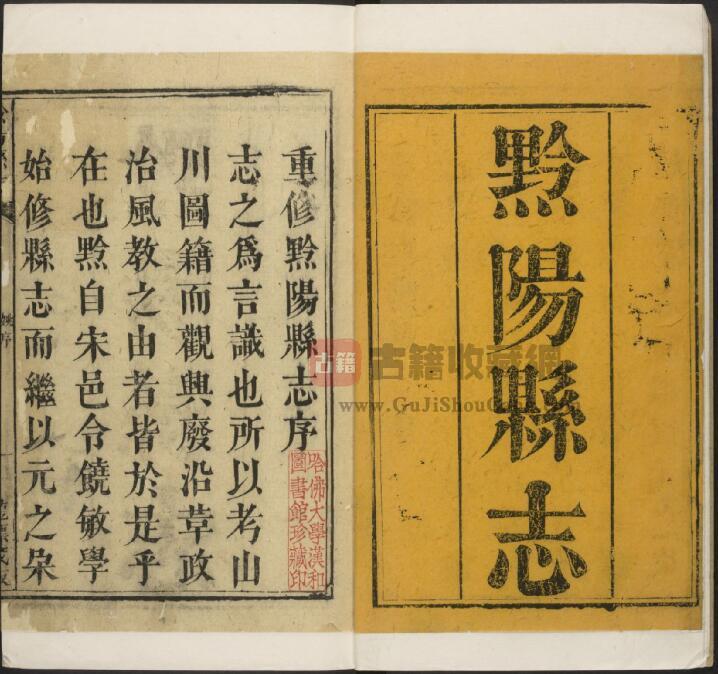 黔陽縣志
重修黔陽縣志序
志之爲言識也所以考山
川圖籍而觀興廢沿革政
治風教之由者皆於是乎
在也黔自宋邑令饒敏學
始修縣志而繼以元之朵
哈佛大學漢和
圖書館珍藏印
古籍
古籍收藏網
www.GuJiShouC